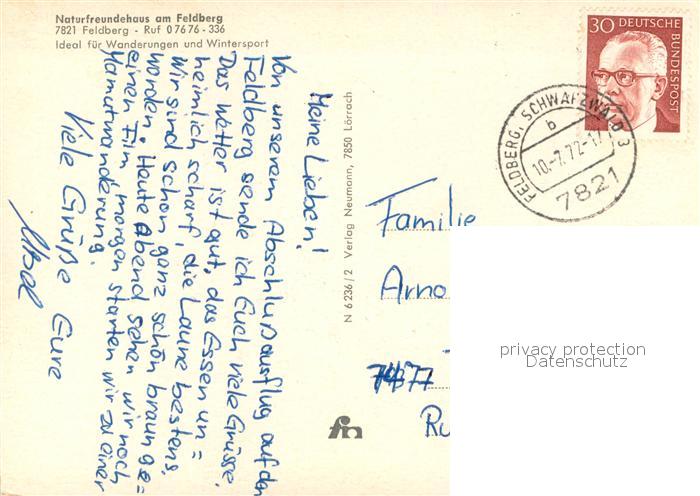 Naturfreundehaus am Feldberg
7821 Feldberg - Ruf 0 76 76 - 336
Ideal für Wanderungen und Wintersport
Meine Lieben!
Von unserem Abschlußausflug auf den
Feldberg sende ich Euch viele Grüsse.
Das Wetter ist gut, das Essen un=
heimlich scharf, die Laune bestens.
Wir sind schon ganz schön braun ge=
worden. Heute Abend sehen wir noch
einen Film, morgen starten wir zu einer
Mamutwanderung.
Viele Grüße Eure
N 6236/2 Verlag Neumann, 7850 Lörrach
30 DEUTSCHE BUNDESPOST
FELDBERG, SCHWARZWALD 3
b
10.-7.72-17
7821
Familie
Arno
7477
Ru
privacy protection
Datenschutz